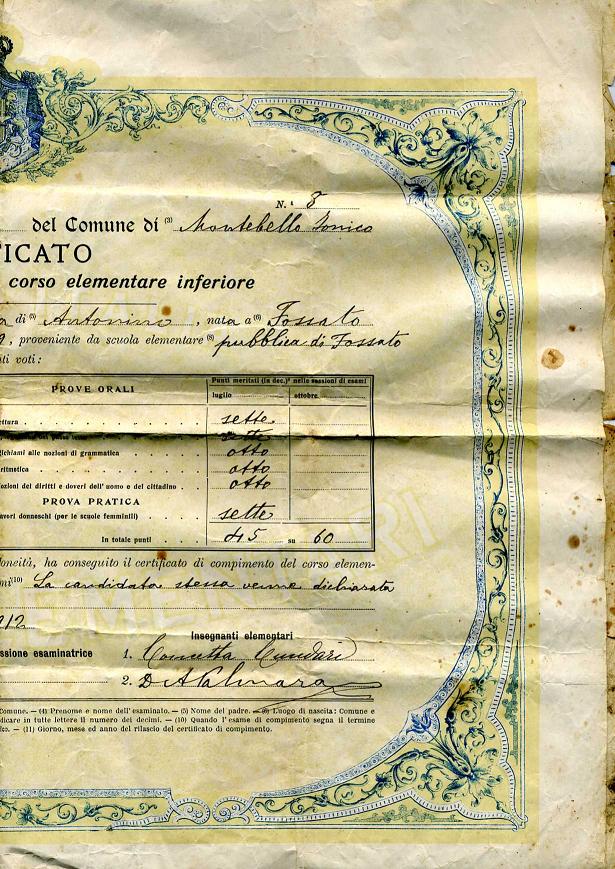 N. 8
del Comune di (3) Montebello Jonico
ICATO
corso elementare inferiore
a di (5) Antonino, nata a (6) Fossato
, proveniente da scuola elementare (8) pubblica di Fossato
ti voti:
PROVE ORALI
Punti meritati (in dec.) nelle sessioni di esami
luglio
ottobre.
ettura sette
sette
ichiami alle nozioni di grammatica otto
ritmetica otto
ozioni dei diritti e doveri dell'uomo e del cittadino otto
PROVA PRATICA
avori donneschi (per le scuole femminili) sette
In totale punti 45 su 60
oneità, ha conseguito il certificato di compimento del corso elemen-
mi (10) La candidata stessa venne dichiarata
912
Insegnanti elementari
ssione esaminatrice
1. Concetta
2.
Comune. — (4) Prenome e nome dell'esaminato. — (5) Nome del padre. — (6) Luogo di nascita: Comune e
dicare in tutte lettere il numero dei decimi. — (10) Quando l'esame di compimento segna il termine
— (11) Giorno, mese ed anno del rilascio del certificato di compimento.